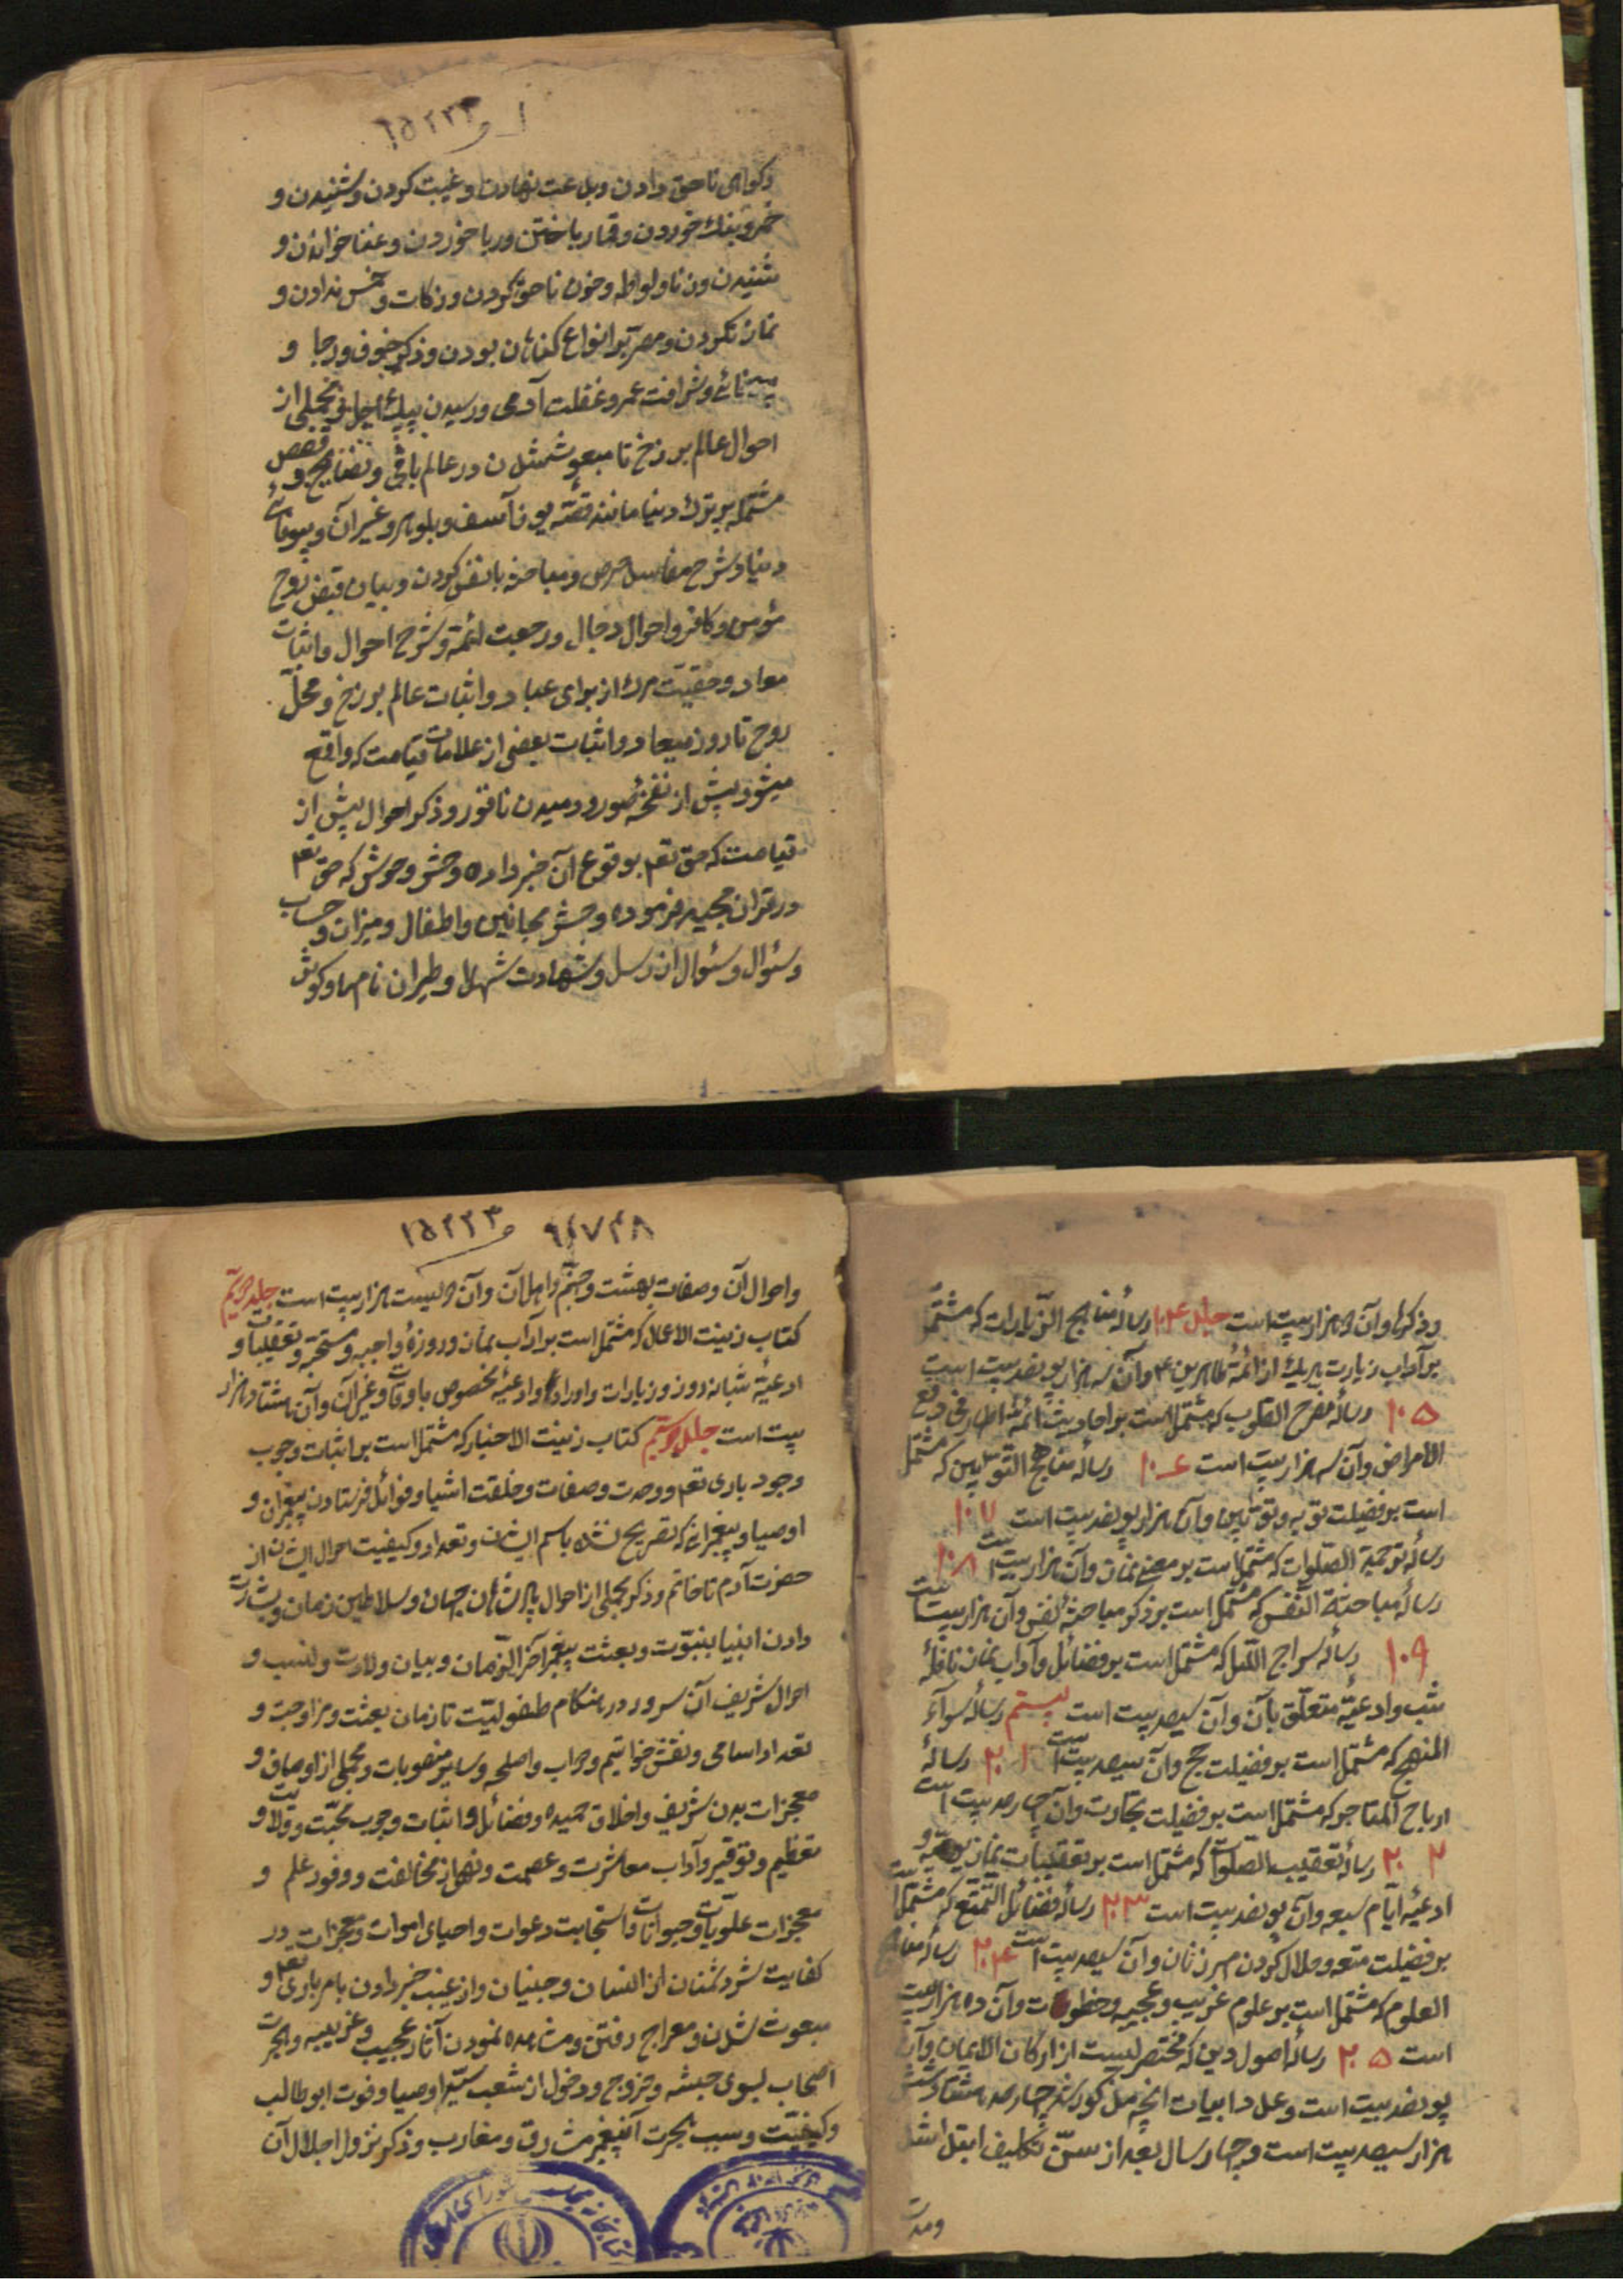 ۱۵۲۲۳
وکواهی ناحق دادن و بدعت نهادن و غیبت کردن و شنیدن و
خمر و بنک خوردن و قمار باختن و ربا خوردن و غنا خواندن و
شنیدن و زنا و لواطه و خون ناحق کردن و زکات و خمس ندادن و
نماز نکردن و مصر بر انواع کناهان بودن و ذکر خوف و رجا و
و شرافت عمر و غفلت آدمی و رسیدن پیک اجل و مجملی از
احوال عالم برزخ تا مبعوث شدن در عالم باقی و نصایح و قصص
مشتمله بر ترک دنیا مانند قصّه یوذآسف و بلوهر و غیر آن و بیوفائی
دنیا و شرح مفاسد حرص و مباحثه با نفس کردن و بیان قبض روح
مؤمن و کافر و احوال دجال و رجعت ائمّه و شرح احوال و اثبات
معاد و حقیّت مرک از برای عباد و اثبات عالم برزخ و محلّ
روح تا روز میعاد و اثبات بعضی از علامات قیامت که واقع
میشود پیش از نفخهٔ صور و دمیدن ناقور و ذکر احوال پیش از
قیامت که حق تعم بوقوع آن خبر داده و حشر وحوش که حق تعم
در قرآن مجید فرموده و حشر مجانین و اطفال و میزان و حساب
و سئوال و سئوال از رسل و شهادت شهدا و طیران نامها و کوثر
۱۵۲۲۳ ۹۴۷۴۸
وذکرها و آن هزار بیت است جلد ۱۰۴ رسالهٔ مناهج الزّیارات که مشتمل
بر آداب زیارت هریک از ائمّهٔ طاهرین ع و آن سه هزار و پانصد بیت است
۱۰۵ رسالهٔ مفرح القلوب که مشتمل است بر احادیث ائمّهٔ اطهار فی دفع
الامراض و آن سه هزار بیت است ۱۰۶ رساله مناهج التوّابین که مشتمل
است بر فضیلت توبه و توّابین و آن هزار و پانصد بیت است ۱۰۷
رسالهٔ ترجمة الصّلوات که مشتمل است بر معنی نماز و آن هزار بیت است ۱۰۸
رسالهٔ مباحثة النّفس که مشتمل است بر ذکر مباحثهٔ نفس و آن هزار بیت است
۱۰۹ رساله سراج اللّیل که مشتمل است بر فضائل و آداب نماز نافلهٔ
شب و ادعیهٔ متعلّق بآن و آن سیصد بیت است بیستم رسالهٔ سواء
المنهج که مشتمل است بر فضیلت حج و آن سیصد بیت است ۲۰۱ رسالهٔ
ارباح المتاجر که مشتمل است بر فضیلت تجارت و آن چهارصد بیت است
۲۰۲ رسالهٔ تعقیب الصّلوات که مشتمل است بر تعقیبات نماز یومیّه و
ادعیهٔ ایّام سبعه و آن پانصد بیت است ۲۰۳ رسالهٔ فضائل التّمتّع که مشتمل است
بر فضیلت متعه و حلال کردن مر زنان و آن سیصد بیت است ۲۰۴ رسالهٔ مفاتح
العلوم که مشتمل است بر علوم غریب و عجیبه و آن ده هزار بیت
است ۲۰۵ رساله اصول دین که مختصریست از ارکان الایمان و آن
پانصد بیت است و عدد ابیات آنچه مذکور شد چهارصد هشتاد و شش
هزار سیصد بیت است و چهار سال بعد از سنّ تکلیف
ومدت
و احوال آن و صفات بهشت و جهنّم و اهل آن و آن دویست هزار بیت است جلد دویّم
کتاب زینت الاعمال که مشتمل است بر آداب نماز و روزهٔ واجبه و مستحبّه و تعقیبات و
ادعیهٔ شبانه روز و زیارات و اوراد و ادعیهٔ مخصوص باوقات و غیر آن و آن هشتاد هزار
بیت است جلد سیّم کتاب زینت الاخبار که مشتمل است بر اثبات وجوب
وجود باری تعم و وحدت و صفات و خلقت اشیا و فوائد فرستادن پیغمبران و
اوصیا و پیغمبرانی که تصریح نشده باسم ایشان و تعداد و کیفیت احوال ایشان از
حضرت آدم تا خاتم و ذکر مجملی از احوال پادشاهان جهان و سلاطین زمان و بشارت
دادن انبیا بنبوّت و بعثت پیغمبر آخر الزّمان و بیان ولادت و نسب و
احوال شریف آن سرور در هنکام طفولیّت تا زمان بعثت و مزاوجت و
تعداد اسامی و نقش خواتیم و دواب و اسلحه و سایر منصوبات و مجملی از اوصاف و
معجزات بدن شریف و اخلاق حمیده و فضائل و اثبات وجوب محبّت و ولایت و
تعظیم و توقیر و آداب معاشرت و عصمت و نهی از مخالفت و وفور علم و
معجزات علویّات و حیوانات و استجابت دعوات و احیای اموات و معجزات در
کفایت شرّ دشمنان از انسان و جنیان و از غیب خبر دادن بامر باری تعم و
مبعوث شدن و معراج رفتن و مشاهده نمودن آثار عجیب و غریبه و هجرت
اصحاب بسوی حبشه و خروج و دخول از شعب سیّد اوصیا و فوت ابو طالب
و کیفیّت و سبب هجرت آن پیغمبر مشارق و مغارب و ذکر نزول اجلال آن
کتابخانه مجلس شورای اسلامی